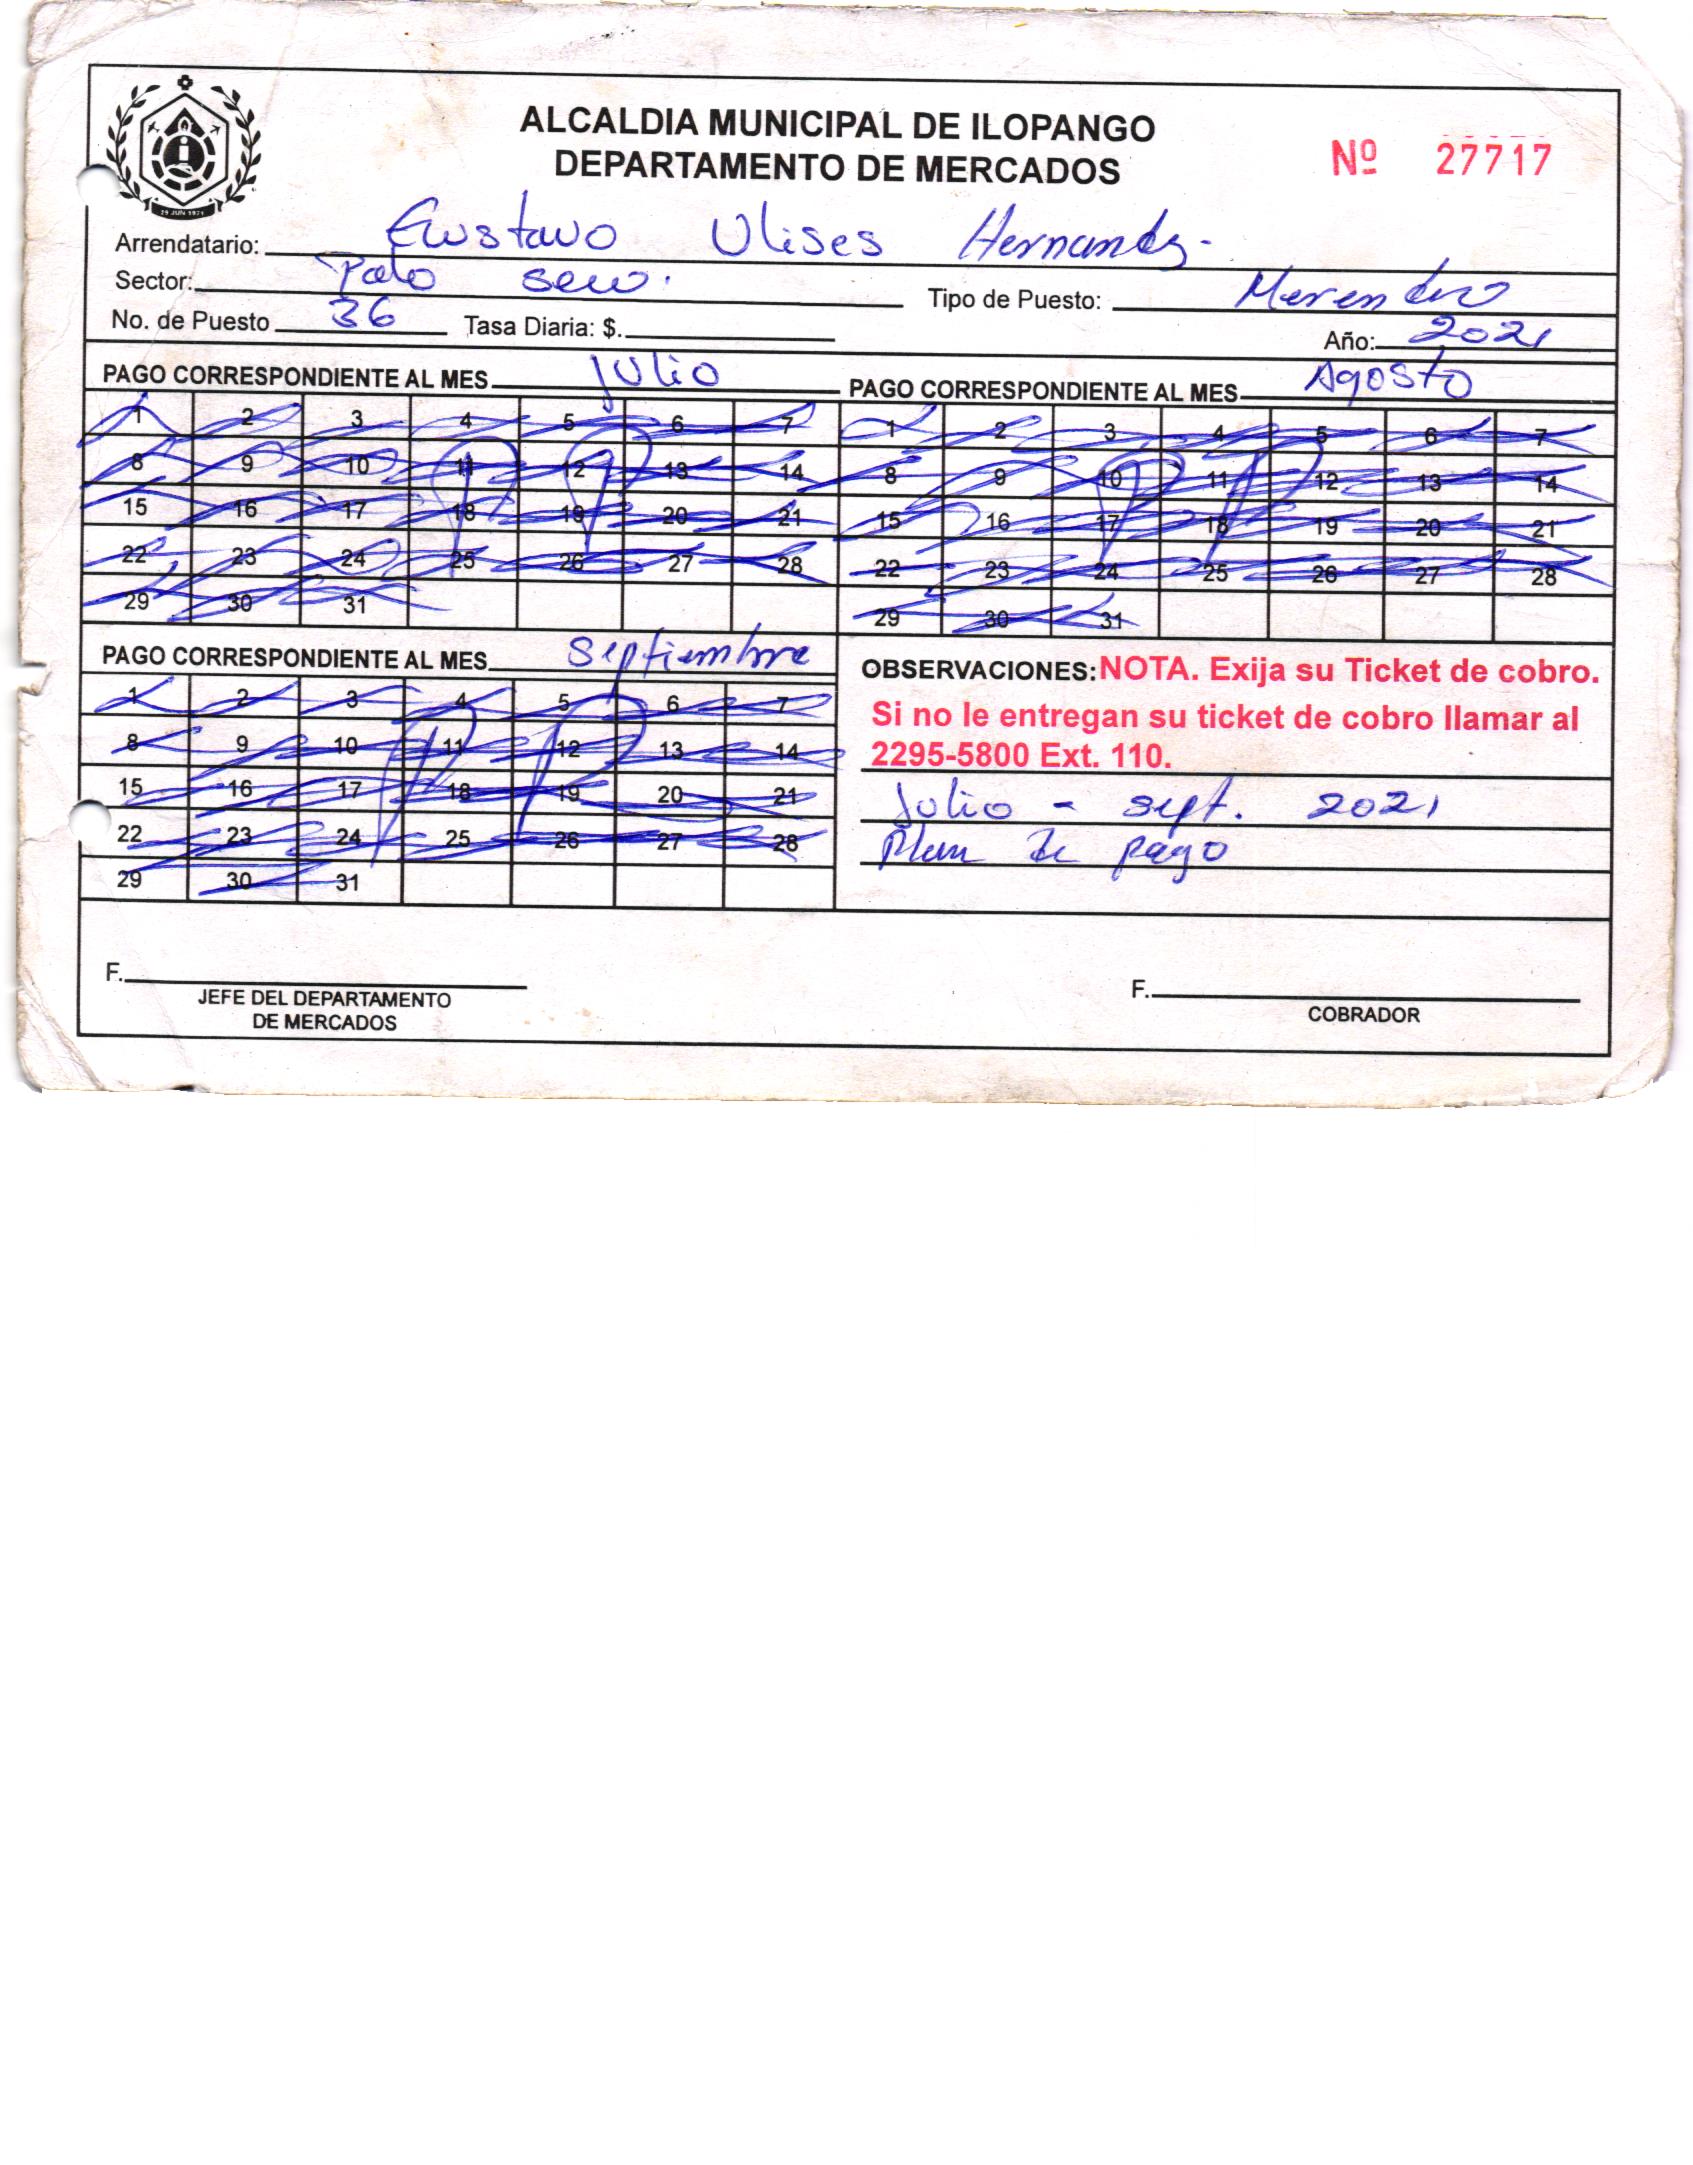 ALCALDIA MUNICIPAL DE ILOPANGO
DEPARTAMENTO DE MERCADOS
Nº 27717
29 JUN 1971
Arrendatario: Gustavo Ulises Hernandez.
Sector: Palo seco. Tipo de Puesto: Merendero
No. de Puesto 36 Tasa Diaria: $. Año: 2021
PAGO CORRESPONDIENTE AL MES Julio
1 2 3 4 5 6 7
8 9 10 11 12 13 14
15 16 17 18 19 20 21
22 23 24 25 26 27 28
29 30 31
PAGO CORRESPONDIENTE AL MES Agosto
1 2 3 4 5 6 7
8 9 10 11 12 13 14
15 16 17 18 19 20 21
22 23 24 25 26 27 28
29 30 31
PAGO CORRESPONDIENTE AL MES Septiembre
1 2 3 4 5 6 7
8 9 10 11 12 13 14
15 16 17 18 19 20 21
22 23 24 25 26 27 28
29 30 31
OBSERVACIONES: NOTA. Exija su Ticket de cobro.
Si no le entregan su ticket de cobro llamar al
2295-5800 Ext. 110.
Julio - sept. 2021
Plan de pago
F.
JEFE DEL DEPARTAMENTO
DE MERCADOS
F.
COBRADOR